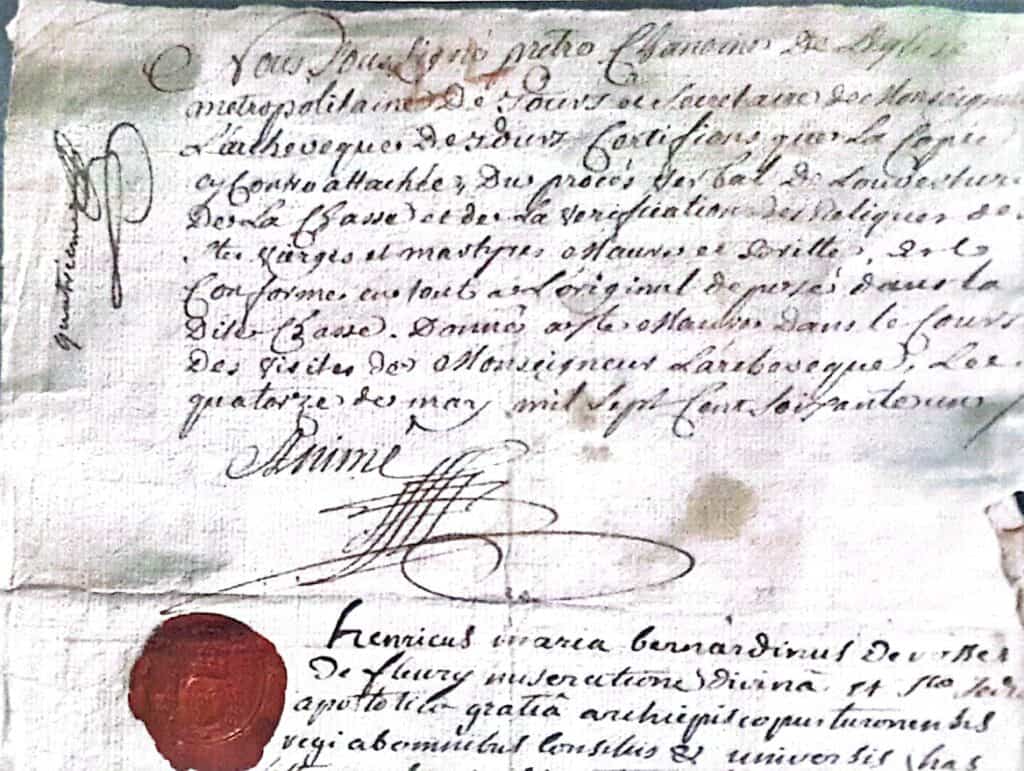 Nous Soussigné pretre Chanoine De L'eglise
metropolitaine De Tours et Secretaire de Monseigneu
L'archeveque De Tours Certifions que La Copie
cy Contre attachée, Du procés verbal De L'ouverture
De La Chasse et de La verification des Reliques de
Stes vierges et martyres Maure et Britte, Est
Conforme en tout a L'original deposé dans la
Dite Chasse. Donné a Ste Maure Dans le Cours
Des visites de Monseigneur L'archeveque, Le
quatorze de may mil Sept Cent Soixante un
quatrieme
Henricus maria bernardinus De rosset
De fleury miseratione divinâ et Stae Sedis
apostolicae gratiâ archiepiscopus turonensis
regi ab omnibus Consiliis & universis has